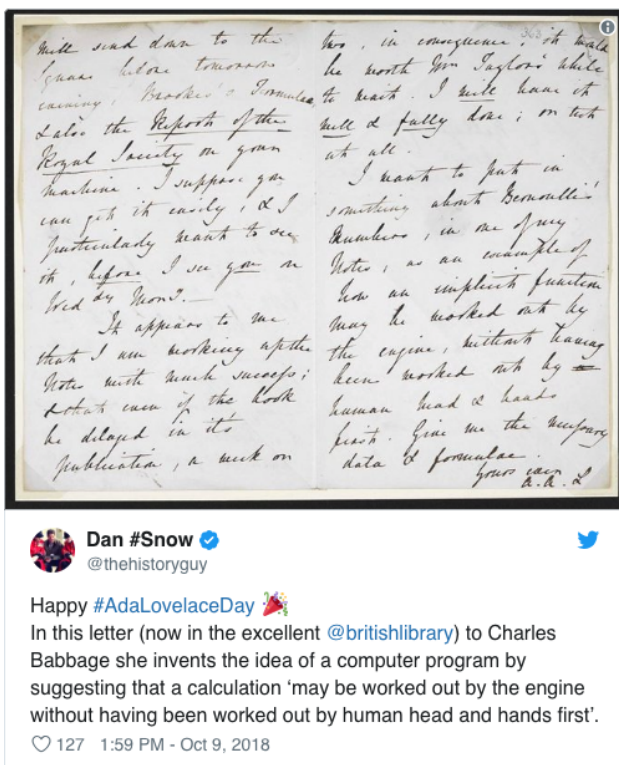 will send down to the
Square before tomorrow
evening, Brooke's Formulae,
& also the Report of the
Royal Society on your
machine. I suppose you
can get it easily, & I
particularly want to see
it, before I see you on
Wed dy Morng.
It appears to me
that I am working up the
Notes with much success;
& that even if the book
be delayed in it's
publication, a week or
363
two, in consequence, it would
be worth Mr Taylor's while
to wait. I will have it
well & fully done; or not
at all.
I want to put in
something about Bernoulli's
Numbers, in one of my
Notes, as an example of
how an implicit function
may be worked out by
the engine, without having
been worked out by
human head & hands
first. Give me the necessary
data & formulae.
Yours ever
A.A.L
Dan #Snow
@thehistoryguy
Happy #AdaLovelaceDay 🎉
In this letter (now in the excellent @britishlibrary) to Charles
Babbage she invents the idea of a computer program by
suggesting that a calculation ‘may be worked out by the engine
without having been worked out by human head and hands first’.
127 1:59 PM - Oct 9, 2018